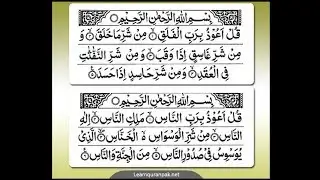 بِسْمِ اللهِ الرَّحْمٰنِ الرَّحِيْمِ
قُلْ اَعُوْذُ بِرَبِّ الْفَلَقِ مِنْ شَرِّ مَا خَلَقَ وَ
مِنْ شَرِّ غَاسِقٍ اِذَا وَقَبَ وَ مِنْ شَرِّ النَّفّٰثٰتِ
فِى الْعُقَدِ وَ مِنْ شَرِّ حَاسِدٍ اِذَا حَسَدَ
بِسْمِ اللهِ الرَّحْمٰنِ الرَّحِيْمِ
قُلْ اَعُوْذُ بِرَبِّ النَّاسِ مَلِكِ النَّاسِ اِلٰهِ
النَّاسِ مِنْ شَرِّ الْوَسْوَاسِ الْخَنَّاسِ الَّذِىْ
يُوَسْوِسُ فِىْ صُدُوْرِ النَّاسِ مِنَ الْجِنَّةِ وَ النَّاسِ
Learnquranpak.net